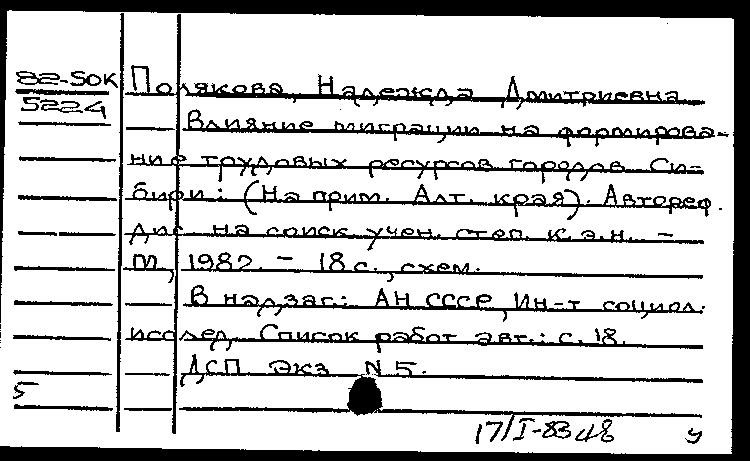 82-5ок
5224
Полякова, Надежда Дмитриевна
Влияние миграции на формирова-
ние трудовых ресурсов городов Си-
бири: (На прим. Алт. края). Автореф.
дис. на соиск. учен. степ. к.э.н. –
М, 1982. – 18 с., схем.
В надзаг.: АН СССР, Ин-т социол.
исслед. Список работ авт.: с. 18.
ДСП Экз N 5.
5
17/I-83 48
у